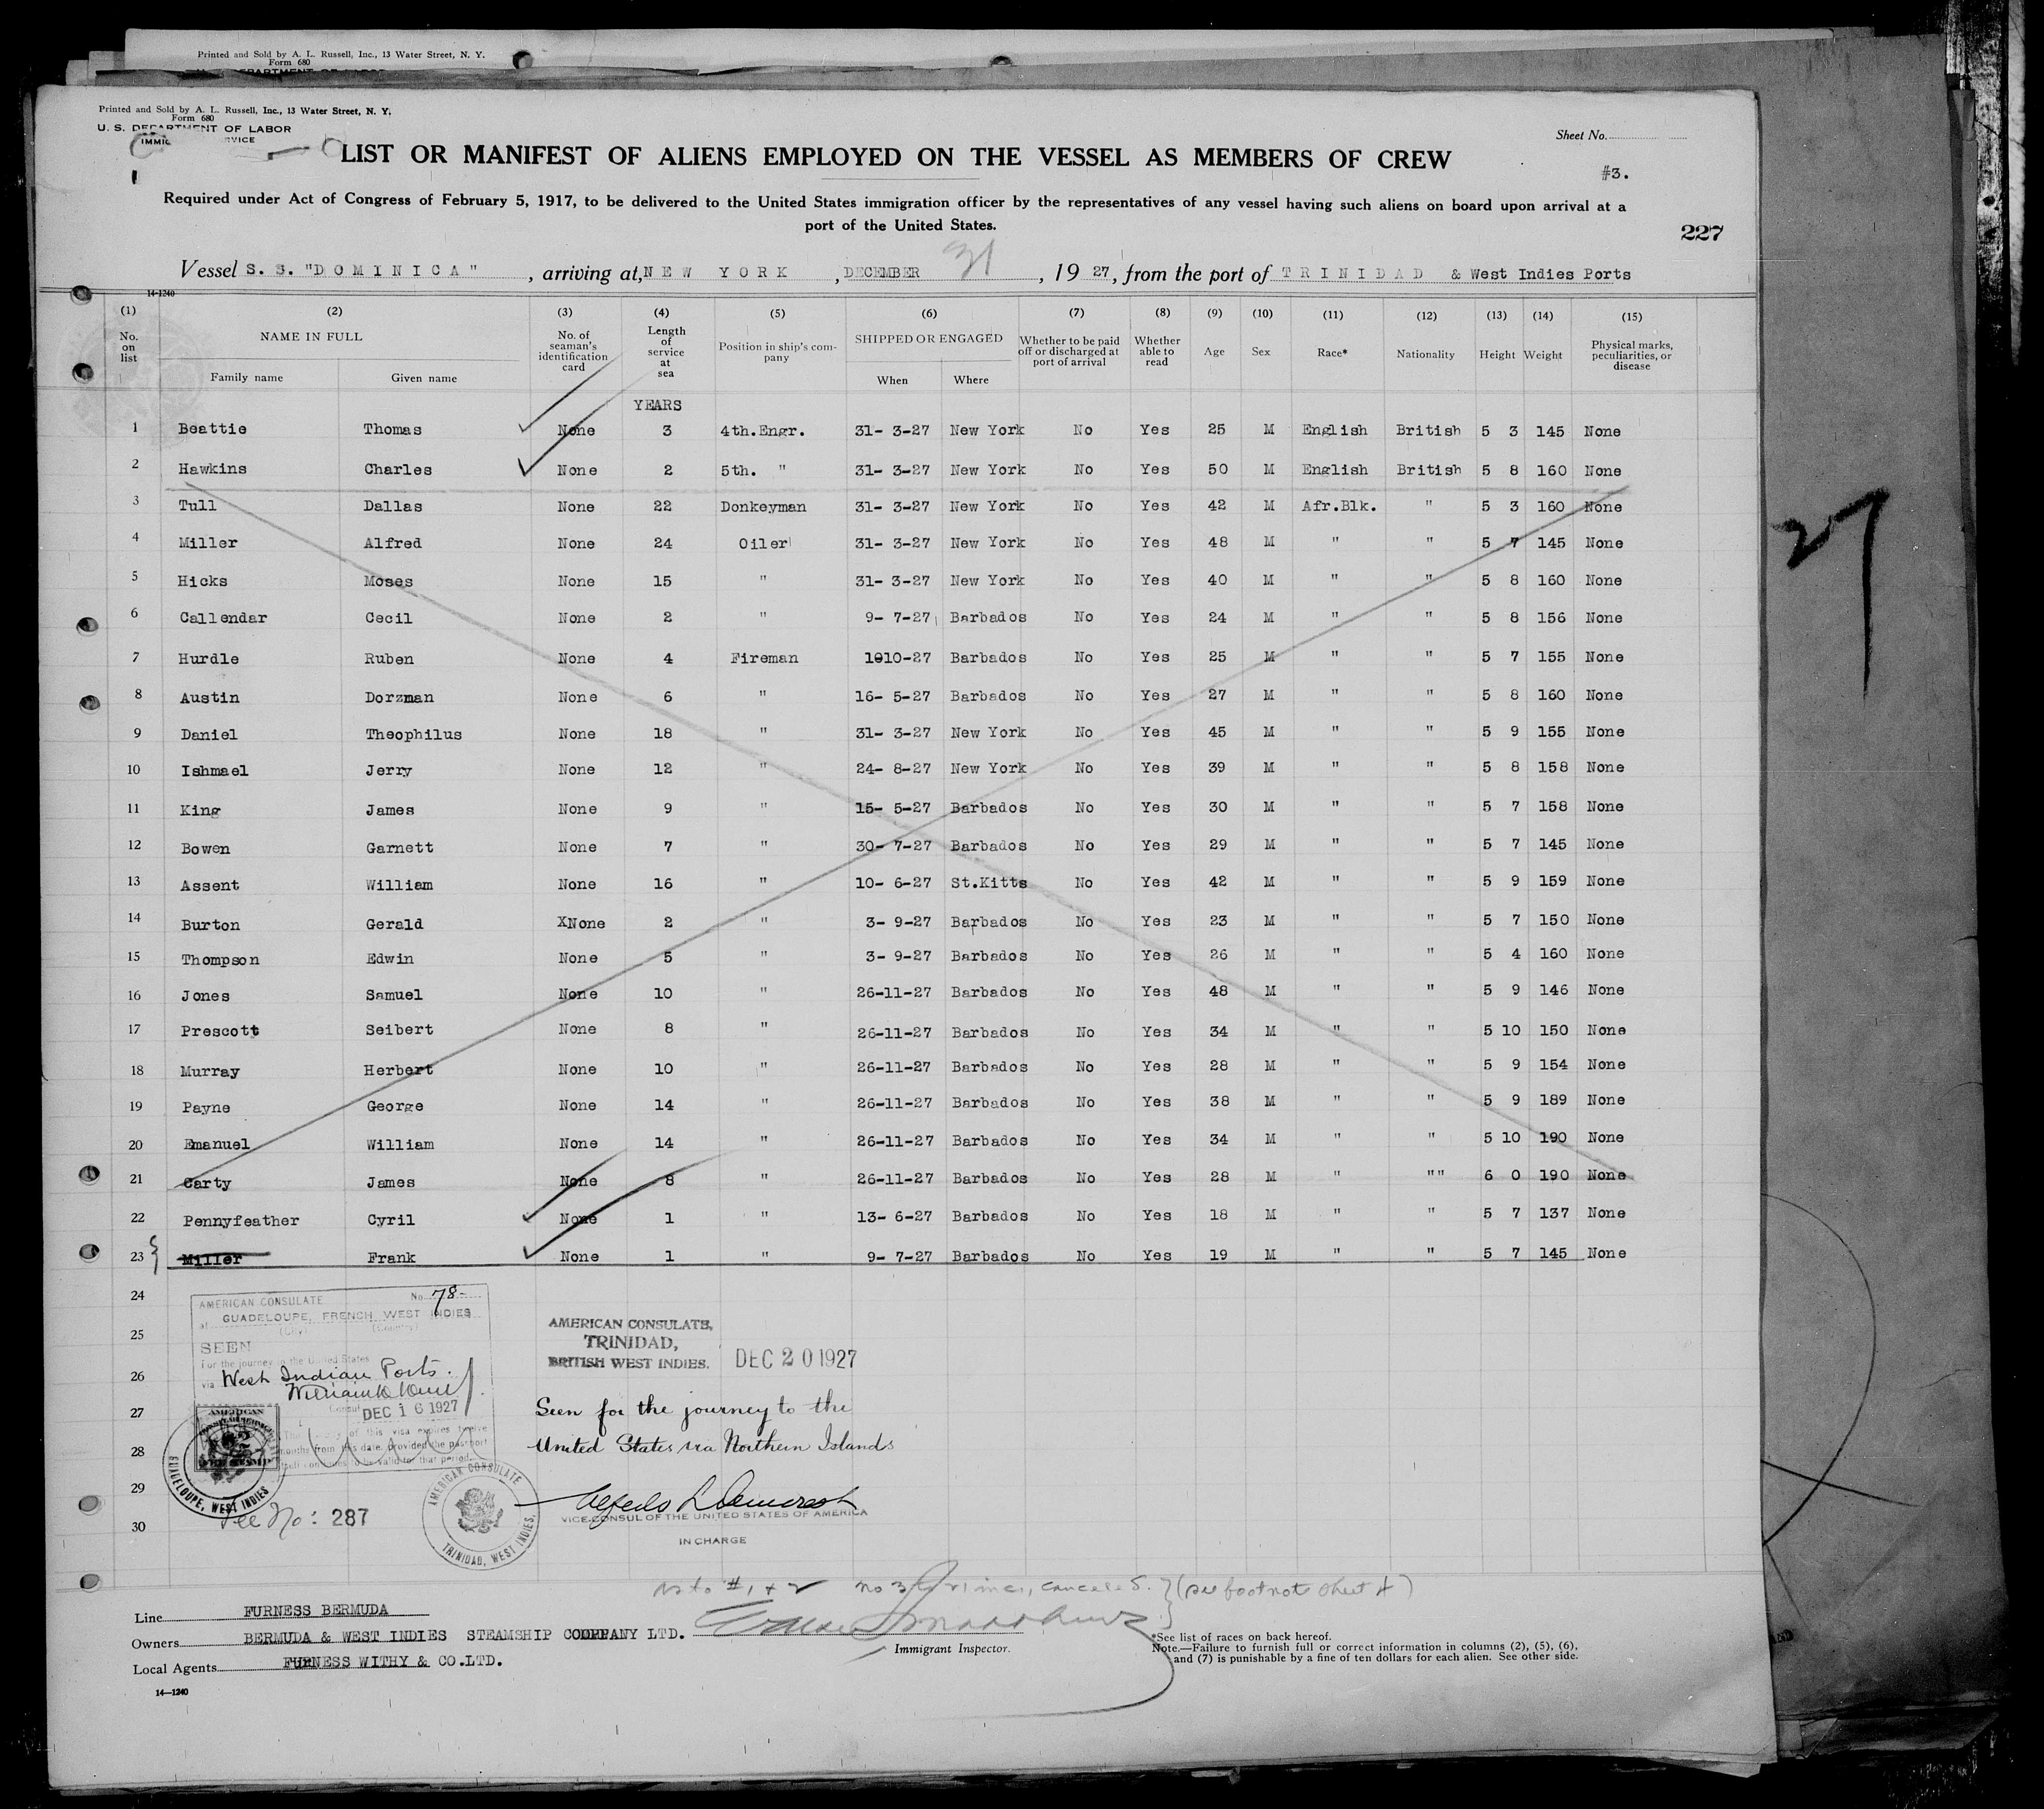 Printed and Sold by A. L. Russell, Inc., 13 Water Street, N. Y.
Form 680
Printed and Sold by A. L. Russell, Inc., 13 Water Street, N. Y.
Form 680
U. S. DEPARTMENT OF LABOR
Sheet No.
LIST OR MANIFEST OF ALIENS EMPLOYED ON THE VESSEL AS MEMBERS OF CREW
#3.
Required under Act of Congress of February 5, 1917, to be delivered to the United States immigration officer by the representatives of any vessel having such aliens on board upon arrival at a
port of the United States.
227
Vessel S. S. "DOMINICA", arriving at, NEW YORK, DECEMBER 31, 1927, from the port of TRINIDAD & West Indies Ports
14-1240
(1) (2) (3) (4) (5) (6) (7) (8) (9) (10) (11) (12) (13) (14) (15)
No. on list NAME IN FULL Family name Given name No. of seaman's identification card Length of service at sea Position in ship's company SHIPPED OR ENGAGED When Where Whether to be paid off or discharged at port of arrival Whether able to read Age Sex Race* Nationality Height Weight Physical marks, peculiarities, or disease
YEARS
1 Beattie Thomas None 3 4th.Engr. 31- 3-27 New York No Yes 25 M English British 5 3 145 None
2 Hawkins Charles None 2 5th. " 31- 3-27 New York No Yes 50 M English British 5 8 160 None
3 Tull Dallas None 22 Donkeyman 31- 3-27 New York No Yes 42 M Afr.Blk. " 5 3 160 None
4 Miller Alfred None 24 Oiler 31- 3-27 New York No Yes 48 M " " 5 7 145 None
5 Hicks Moses None 15 " 31- 3-27 New York No Yes 40 M " " 5 8 160 None
6 Callendar Cecil None 2 " 9- 7-27 Barbados No Yes 24 M " " 5 8 156 None
7 Hurdle Ruben None 4 Fireman 1010-27 Barbados No Yes 25 M " " 5 7 155 None
8 Austin Dorzman None 6 " 16- 5-27 Barbados No Yes 27 M " " 5 8 160 None
9 Daniel Theophilus None 18 " 31- 3-27 New York No Yes 45 M " " 5 9 155 None
10 Ishmael Jerry None 12 " 24- 8-27 New York No Yes 39 M " " 5 8 158 None
11 King James None 9 " 15- 5-27 Barbados No Yes 30 M " " 5 7 158 None
12 Bowen Garnett None 7 " 30- 7-27 Barbados No Yes 29 M " " 5 7 145 None
13 Assent William None 16 " 10- 6-27 St.Kitts No Yes 42 M " " 5 9 159 None
14 Burton Gerald XNone 2 " 3- 9-27 Barbados No Yes 23 M " " 5 7 150 None
15 Thompson Edwin None 5 " 3- 9-27 Barbados No Yes 26 M " " 5 4 160 None
16 Jones Samuel None 10 " 26-11-27 Barbados No Yes 48 M " " 5 9 146 None
17 Prescott Seibert None 8 " 26-11-27 Barbados No Yes 34 M " " 5 10 150 None
18 Murray Herbert None 10 " 26-11-27 Barbados No Yes 28 M " " 5 9 154 None
19 Payne George None 14 " 26-11-27 Barbados No Yes 38 M " " 5 9 189 None
20 Emanuel William None 14 " 26-11-27 Barbados No Yes 34 M " " 5 10 190 None
21 Carty James None 8 " 26-11-27 Barbados No Yes 28 M " "" 6 0 190 None
22 Pennyfeather Cyril None 1 " 13- 6-27 Barbados No Yes 18 M " " 5 7 137 None
23 Miller Frank None 1 " 9- 7-27 Barbados No Yes 19 M " " 5 7 145 None
24
25
26
27
28
29
30
27
AMERICAN CONSULATE No. 78-
at GUADELOUPE, FRENCH WEST INDIES
(City) (Country)
SEEN
For the journey to the United States
via West Indian Ports.
Consul
DEC 16 1927
The validity of this visa expires twelve
months from this date, provided the passport
itself continues to be valid for that period.
AMERICAN
GUADELOUPE, WEST INDIES
Fee No: 287
AMERICAN CONSULATE
TRINIDAD, WEST INDIES.
AMERICAN CONSULATE,
TRINIDAD,
BRITISH WEST INDIES.
DEC 20 1927
Seen for the journey to the
United States via Northern Islands
VICE-CONSUL OF THE UNITED STATES OF AMERICA
IN CHARGE
as to #1 + 2 (see footnote sheet
Immigrant Inspector.
Line FURNESS BERMUDA
Owners BERMUDA & WEST INDIES STEAMSHIP COMPANY LTD.
Local Agents FURNESS WITHY & CO.LTD.
14-1240
*See list of races on back hereof.
Note.—Failure to furnish full or correct information in columns (2), (5), (6),
and (7) is punishable by a fine of ten dollars for each alien. See other side.